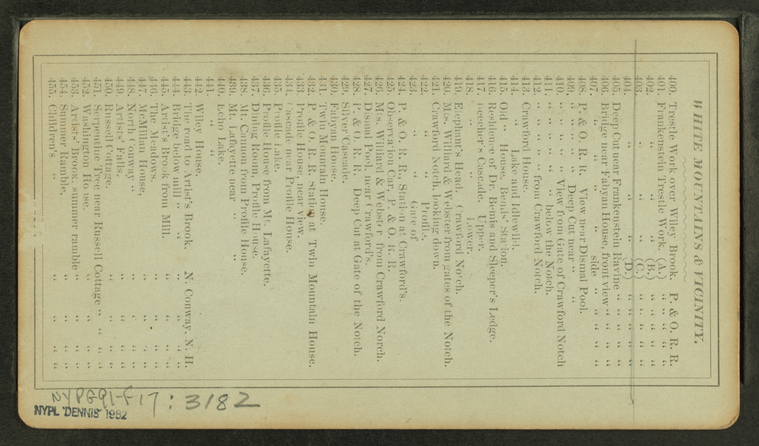 WHITE MOUNTAINS & VICINITY.
400. Trestle Work over Wiley Brook. P. & O. R. R.
401. Frankenstein Trestle Work. (A.) " " "
402. " " " (B.) " " "
403. " " " (C.) " " "
404. " " " (D.) " " "
405. Deep Cut near Frankenstein Ravine " " "
406. Bridge near Fabyan House, front view " " "
407. " " " " side " " " "
408. P. & O. R. R. View near Dismal Pool.
409. " " " Deep Cut near " "
410. " " " View from Gate of Crawford Notch
411. " " " " below the Notch.
412. " " " " from Crawford Notch.
413. Crawford House.
414. " " Lake and Idlewild.
415. Old " House, Bemis' Station.
416. Residence of Dr. Bemis and Sleeper's Ledge.
417. Beecher's Cascade. Upper.
418. " " Lower.
419. Elephant's Head, Crawford Notch.
420. Mts. Willard & Webster from gates of the Notch.
421. Crawford Notch, looking down.
422. " " Profile.
423. " " Gate of
424. P. & O. R. R., Station at Crawford's.
425. Observation Car, P. & O. R. R.
426. Mts. Willard & Webster, from Crawford Notch.
427. Dismal Pool, near Crawford's.
428. P. & O. R. R. Deep Cut at Gate of the Notch.
429. Silver Cascade.
430. Fabyan House.
431. Twin Mountain House.
432. P. & O. R. R. Station at Twin Mountain House.
433. Profile House, near view.
434. Cascade near Profile House.
435. Profile Lake.
436. Profile House from Mt. Lafayette.
437. Dining Room, Profile House.
438. Mt. Cannon from Profile House.
439. Mt. Lafayette near " "
440. Echo Lake.
441. " "
442. Wiley House.
443. The road to Artist's Brook, N. Conway, N. H.
444. Bridge below mill " " " " "
445. Artist's Brook from Mill. " " "
446. The Meadows. " " "
447. McMillan House, " " "
448. North Conway " " "
449. Artists' Falls, " " "
450. Russell Cottage, " " "
451. Serpentine Tree near Russell Cottage " " "
452. Washington House. " " "
453. Artists' Brook, summer ramble " " "
454. Summer Ramble, " " "
455. Children's " " " "
NYPG91-F17: 3182
NYPL "DENNIS" 1982